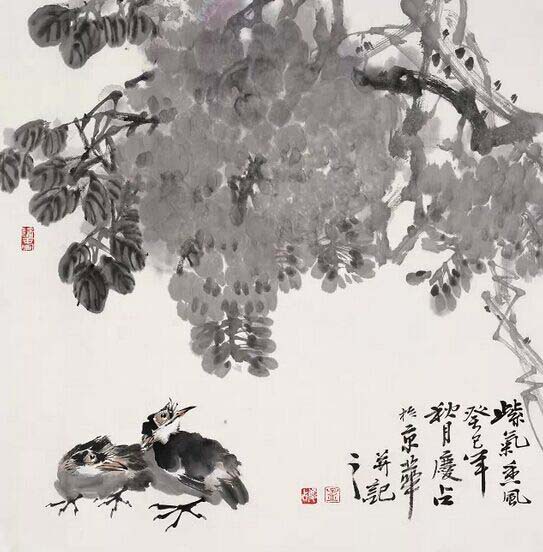 紫氣熏風
癸巳年
秋月慶占
於京華
并記之